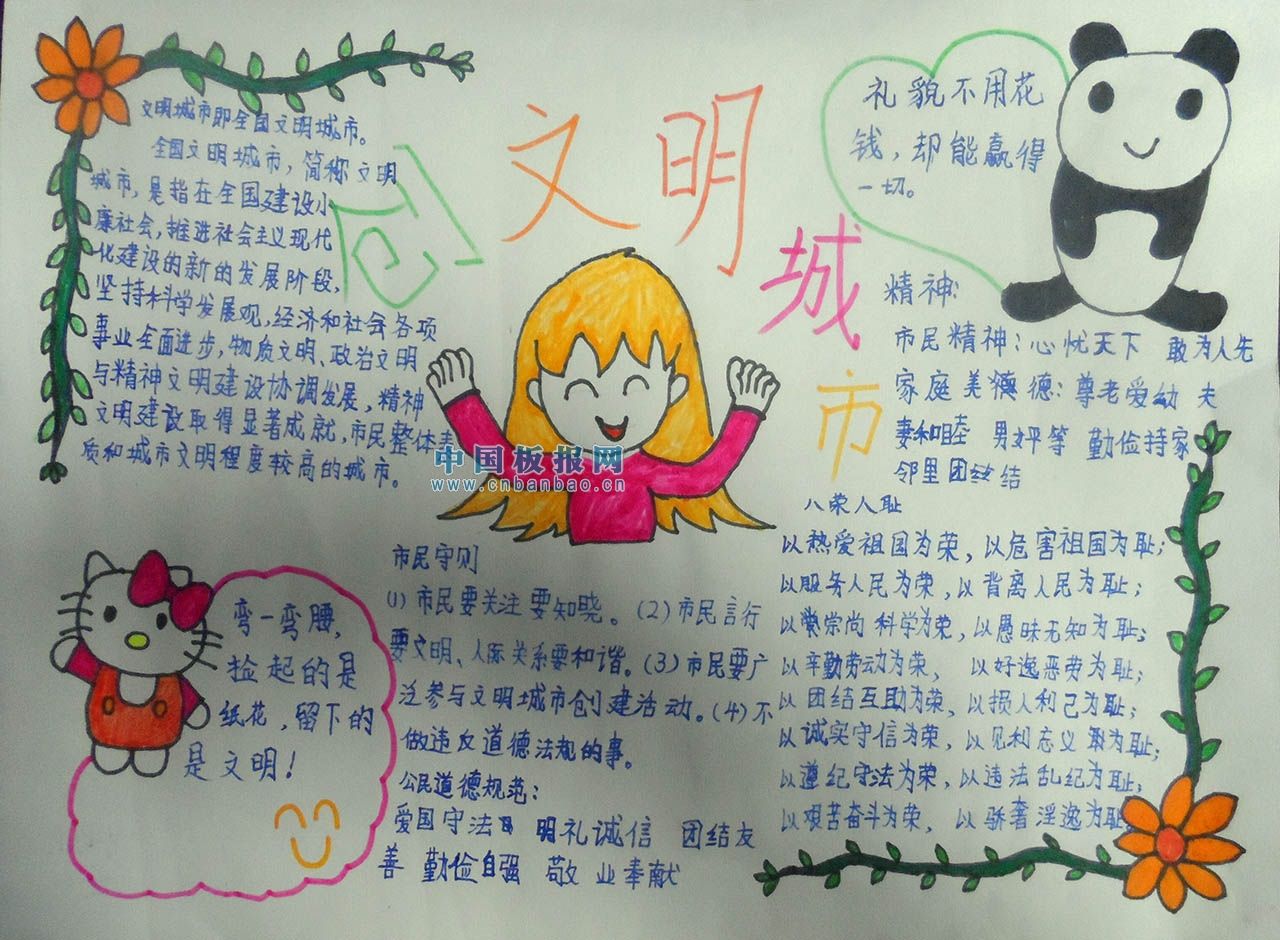 创文明城市
文明城市即全国文明城市。
全国文明城市，简称文明
城市，是指在全国建设小
康社会，推进社会主义现代
化建设的新的发展阶段，
坚持科学发展观，经济和社会各项
事业全面进步，物质文明、政治文明
与精神文明建设协调发展，精神
文明建设取得显著成就，市民整体素
质和城市文明程度较高的城市。
礼貌不用花
钱，却能赢得
一切。
精神：
市民精神：心忧天下 敢为人先
家庭美德：尊老爱幼 夫
妻和睦 男女平等 勤俭持家
邻里团结
八荣八耻
以热爱祖国为荣，以危害祖国为耻；
以服务人民为荣，以背离人民为耻；
以崇尚科学为荣，以愚昧无知为耻；
以辛勤劳动为荣，以好逸恶劳为耻；
以团结互助为荣，以损人利己为耻；
以诚实守信为荣，以见利忘义为耻；
以遵纪守法为荣，以违法乱纪为耻；
以艰苦奋斗为荣，以骄奢淫逸为耻
中国板报网
www.cnbanbao.cn
弯一弯腰，
捡起的是
纸花，留下的
是文明！
市民守则
(1)市民要关注要知晓。(2)市民言行
要文明、人际关系要和谐。(3)市民要广
泛参与文明城市创建活动。(4)不
做违反道德法规的事。
公民道德规范：
爱国守法 明礼诚信 团结友
善 勤俭自强 敬业奉献